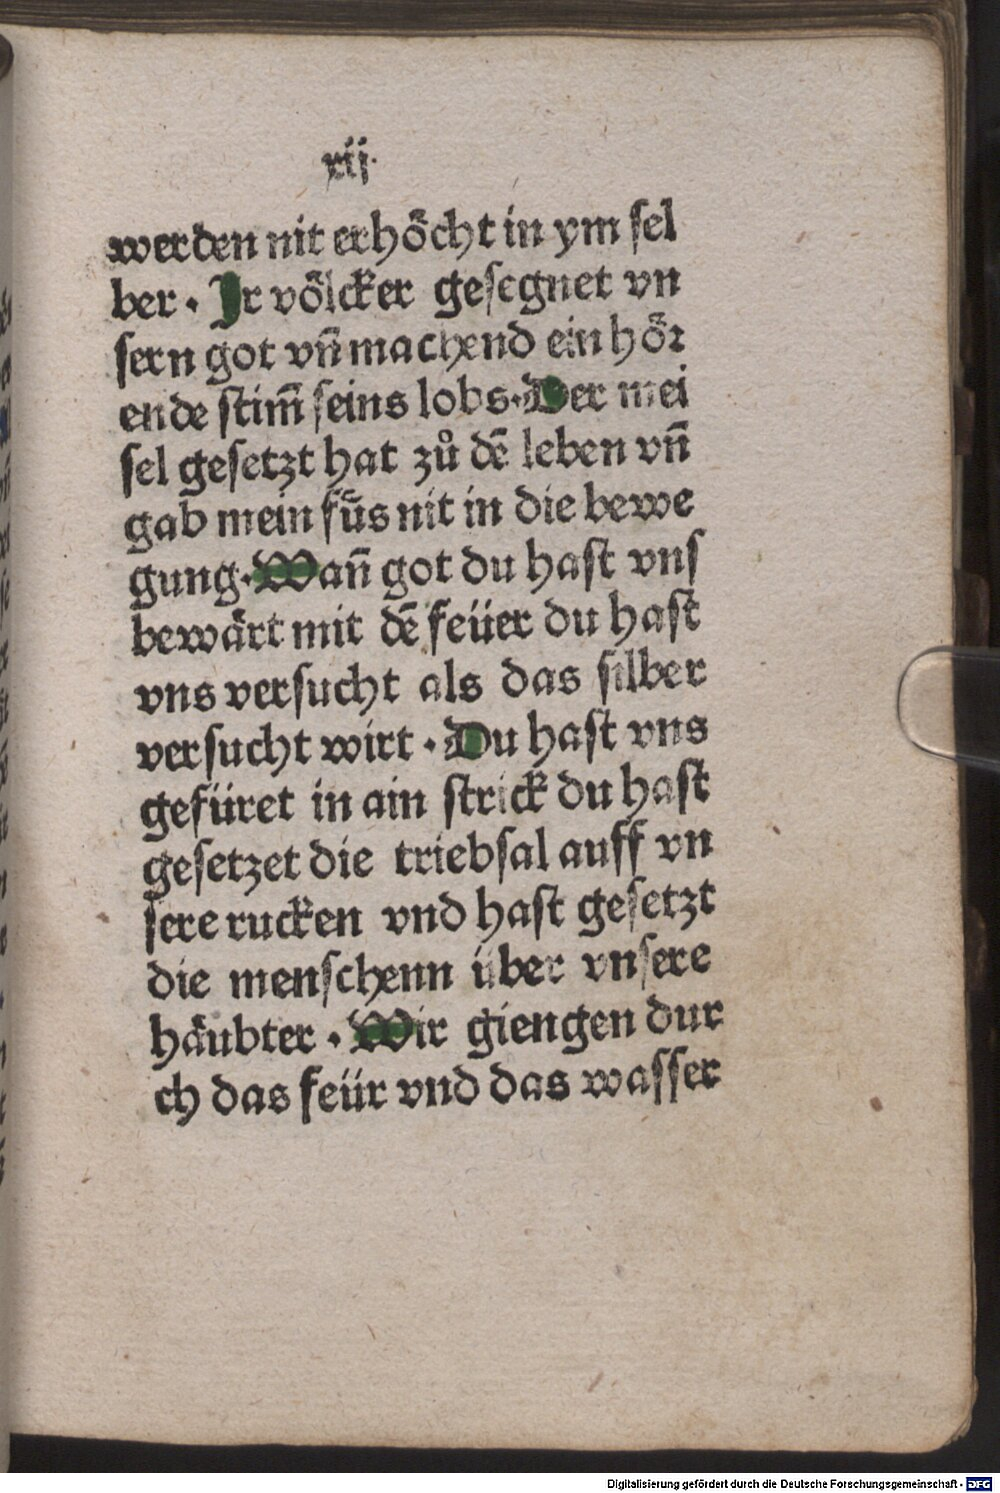 xij.
werden nit erhöcht in ym sel
ber. Ir völcker gesegnet vn
sern got vñ machend ein hör
ende stim̃ seins lobs. Der mei
sel gesetzt hat zů dẽ leben vñ
gab mein füs nit in die bewe
gung. Wañ got du hast vns
bewärt mit dẽ feüer du hast
vns versucht als das silber
versucht wirt. Du hast vns
gefüret in ain strick du hast
gesetzet die triebsal auff vn
sere rucken vnd hast gesetzt
die menschenn über vnsere
häubter. Wir giengen dur
ch das feür vnd das wasser
Digitalisierung gefördert durch die Deutsche Forschungsgemeinschaft - DFG